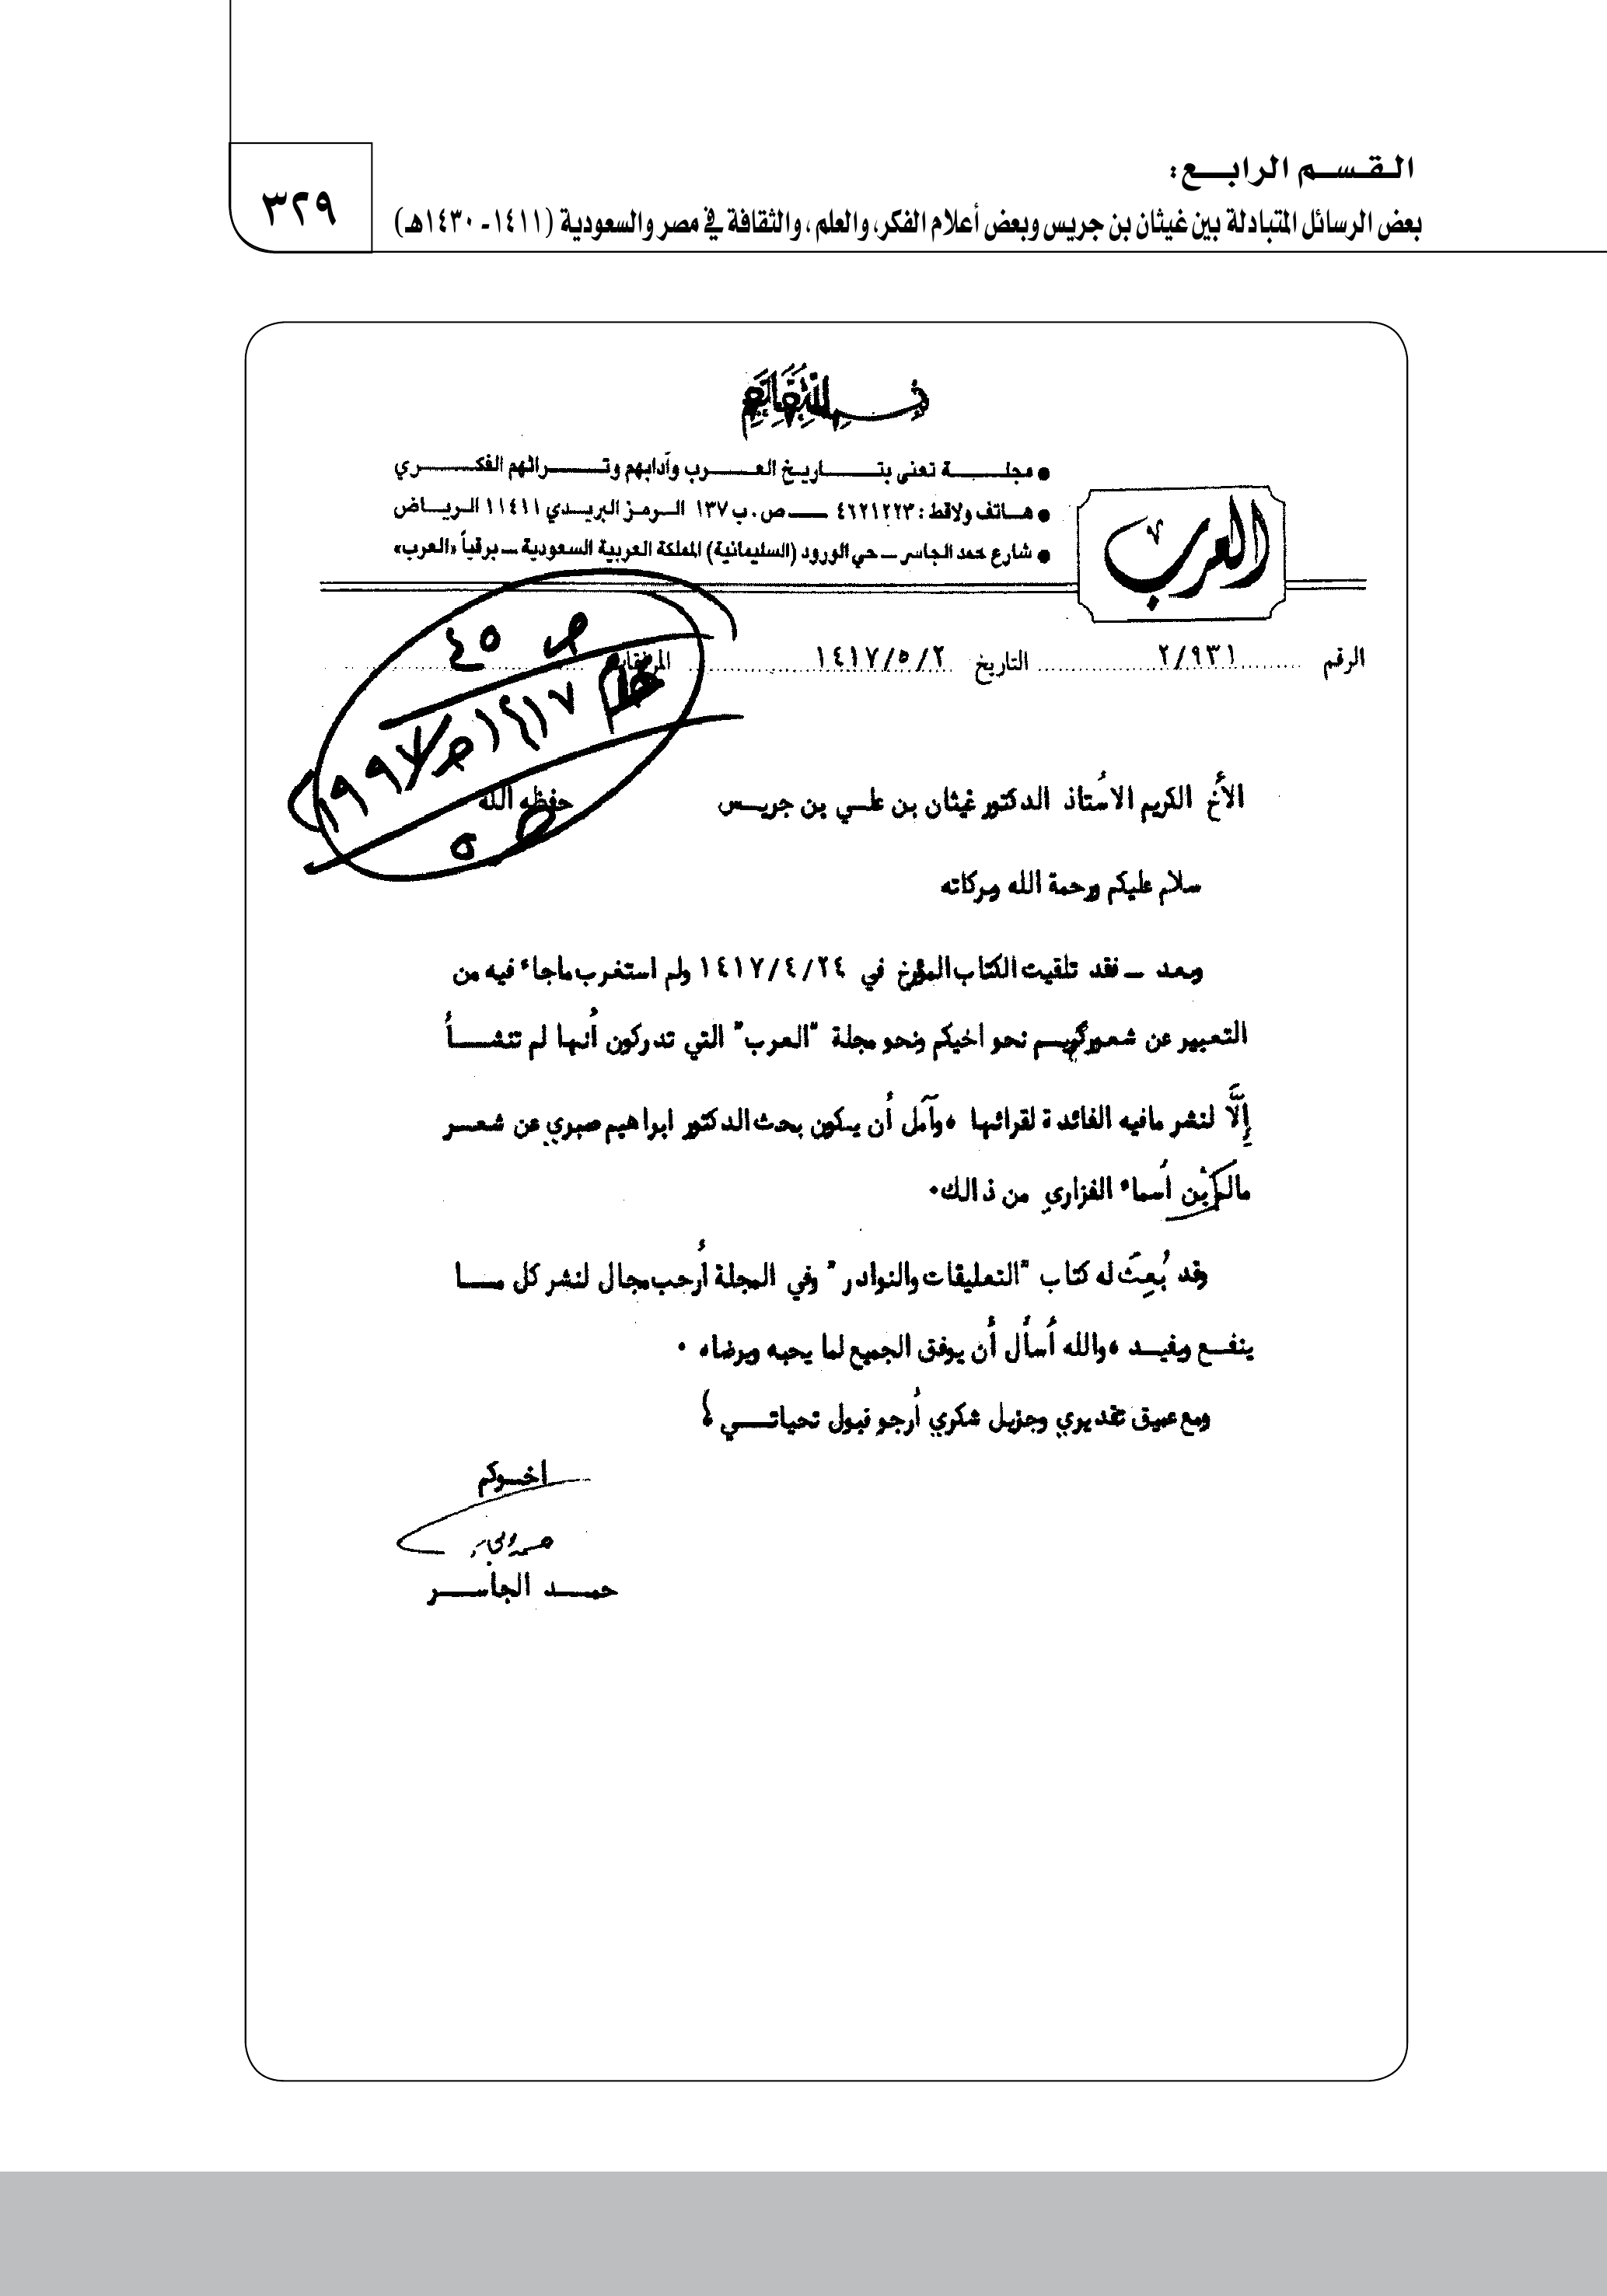 القسم الرابع:
بعض الرسائل المتبادلة بين غيثان بن جريس وبعض أعلام الفكر، والعلم ، والثقافة في مصر والسعودية (١٤١١- ١٤٣٠هـ)
٣٢٩
● مجلة تعنى بتاريخ العرب وآدابهم وتراثهم الفكري
● هاتف ولاقط : ٤٦٢١٢٢٣ — ص . ب ١٣٧ الرمز البريدي ١١٤١١ الرياض
● شارع حمد الجاسر — حي الورود (السليمانية) المملكة العربية السعودية — برقياً «العرب»
العرب
الرقم ٢/٩٣١ التاريخ ١٤١٧/٥/٢ المرفقات
ص ٤٥
١٤١٧
١٩٩٧
ص ٥
الأخ الكريم الأستاذ الدكتور غيثان بن علي بن جريس حفظه الله
سلام عليكم ورحمة الله وبركاته
وبعد — فقد تلقيت الكتاب المؤرخ في ١٤١٧/٤/٢٤ ولم استغرب ماجاء فيه من
التعبير عن شعور كريم نحو اخيكم ونحو مجلة "العرب" التي تدركون أنها لم تنشأ
إلَّا لنشر مافيه الفائدة لقرائها ، وآمل أن يكون بحث الدكتور ابراهيم صبري عن شعر
مالك بن أسماء الفزاري من ذالك .
وقد بُعِثَ له كتاب "التعليقات والنوادر" وفي المجلة أرحب مجال لنشر كل ما
ينفع ويفيد ، والله أسأل أن يوفق الجميع لما يحبه ويرضاه .
ومع عميق تقديري وجزيل شكري أرجو قبول تحياتي ؛
اخوكم
حمد الجاسر